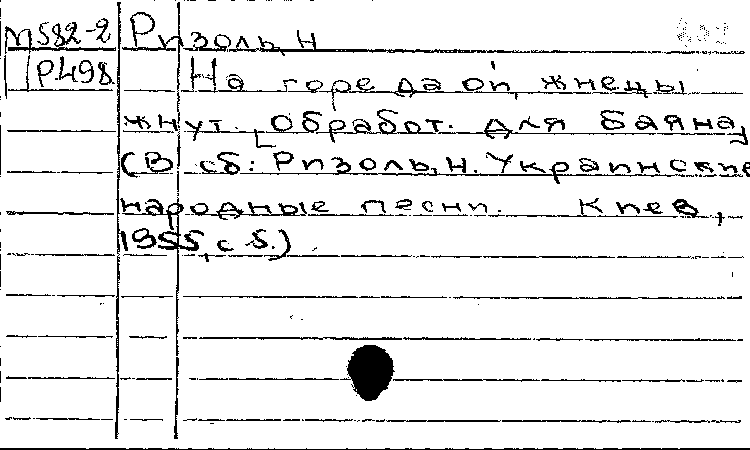 М582-2 Ризоль, Н
Р498 На горе да ой, жнецы
жнут. [Обработ. для баяна]
(В сб: Ризоль, Н. Украинские
народные песни. Киев,
1955, с 5.)